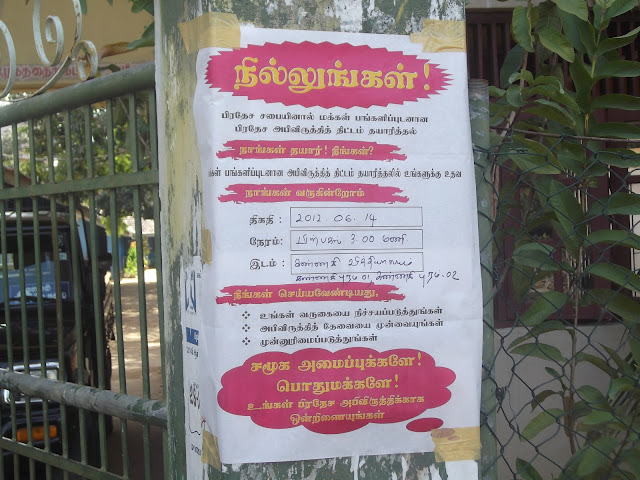 நில்லுங்கள் !
பிரதேச சபையினால் மக்கள் பங்களிப்புடனான
பிரதேச அபிவிருத்தித் திட்டம் தயாரித்தல்
நாங்கள் தயார் ! நீங்கள்?
கள் பங்களிப்புடனான அபிவிருத்தித் திட்டம் தயாரித்தலில் உங்களுக்கு உதவ
நாங்கள் வருகின்றோம்
திகதி : 2012 06. 14
நேரம்: பிற்பகல் 3.00 மணி
இடம் : கண்ணகி வித்தியாலயம்
கண்ணகி புரம் 01 கண்ணகி புரம். 02
நீங்கள் செய்யவேண்டியது,
❖ உங்கள் வருகையை நிச்சயப்படுத்துங்கள்
❖ அபிவிருத்தித் தேவையை முன்வையுங்கள்
❖ முன்னுரிமைப்படுத்துங்கள்
சமூக அமைப்புக்களே!
பொதுமக்களே!
உங்கள் பிரதேச அபிவிருத்திக்காக
ஒன்றிணையுங்கள்